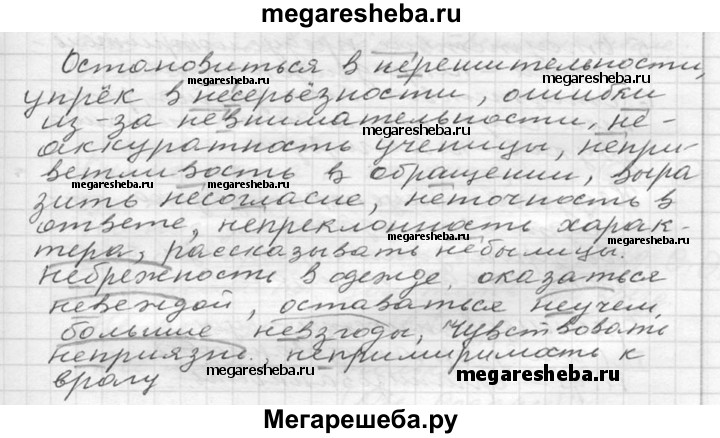 megaresheba.ru
Остановиться в нерешительности,
megaresheba.ru
упрёк в несерьёзности, ошибки
megaresheba.ru
из-за невнимательности, не-
megaresheba.ru
аккуратность ученицы, непри-
ветливость в обращении, выра
megaresheba.ru megaresheba.ru
зить несогласие, неточность в
ответе, непреклонность харак-
megaresheba.ru
тера, рассказывать небылицы.
Небрежность в одежде, оказаться
невеждой, оставаться неучем,
большие невзгоды, чувствовать
неприязнь, непримиримость к
megaresheba.ru
врагу
Мегарешеба.ру